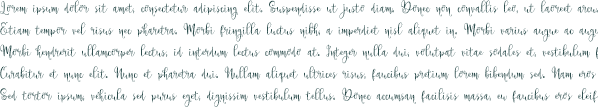 Lorem ipsum dolor sit amet, consectetur adipiscing elit. Suspendisse ut justo diam. Donec non convallis leo, ut laoreet arcu.
Etiam tempor vel risus nec pharetra. Morbi fringilla luctus nibh, a imperdiet nisl aliquet in. Morbi varius augue ac augu
Morbi hendrerit ullamcorper lectus, id interdum lectus commodo at. Integer nulla dui, volutpat vitae sodales et, vestibulum f
Curabitur et nunc elit. Nunc et pharetra dui. Nullam aliquet ultrices risus, faucibus pretium lorem bibendum sed. Nam eros
Sed tortor ipsum, vehicula sed purus eget, dignissim vestibulum tellus. Donec accumsan facilisis massa, eu faucibus eros eleif